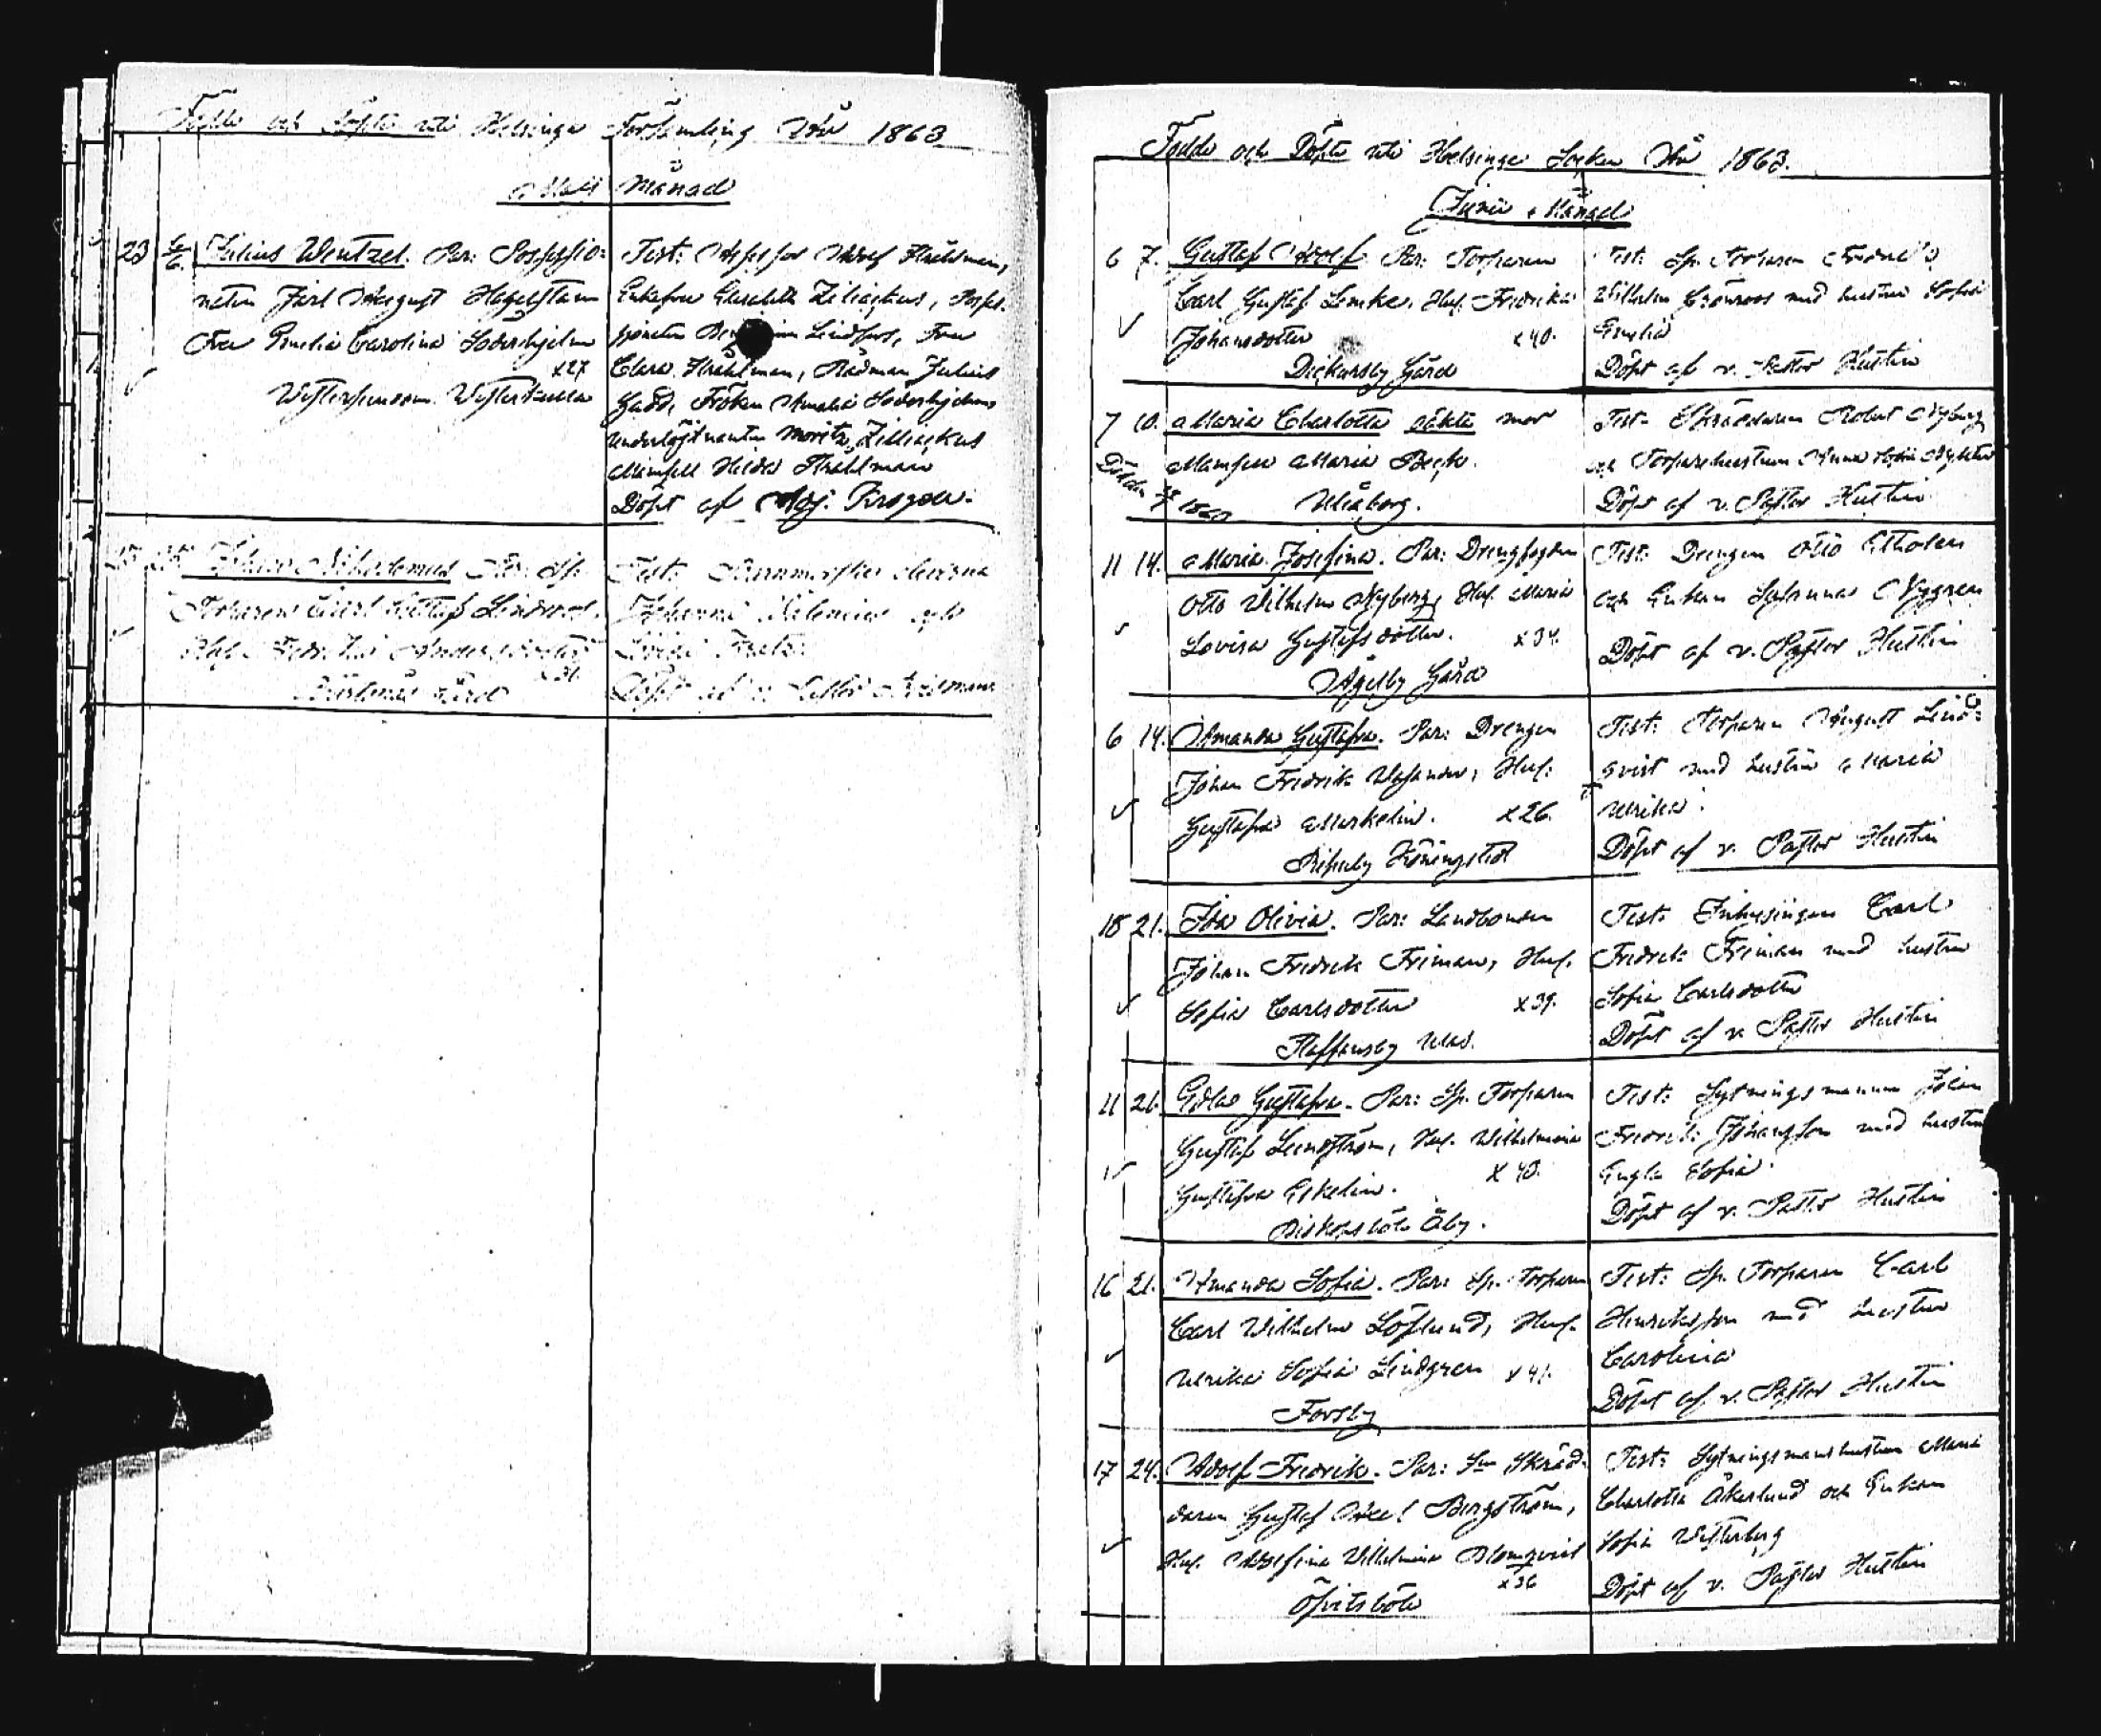 Födde och Döpte uti Helsinge Församling År 1863
Maji Månad
23 Julius Wentzel. Par: Possessio-
naten Jarl August Hagelstam
Fru Emelia Carolina Söderhjelm
x27
Westersundom. Westerkulla
Test: Assessor Adolf Stråhlman,
Enkefru Elisabeth Zilliackus,
Lindfors, Fru
Clara Stråhlman, Rådman Julius
Gadd, Fröken Amalia Söderhjelm
Underlöjtnanten Moritz Zilliackus
Mamsell Hilda Stråhlman
Döpt af Adj. Krogell.
Johan Nikodemus Par: Sp.
Torparen Carl Gustaf Lindroos,
Hus. Fredrika Andersdotter
x31.
gård
Test: Barnmorskan
Johanna och
Döpt af v. Pastor
Födde och Döpte uti Helsinge Socken År 1863.
Junii Månad
6 7. Gustaf Adolf Par: Torparen
Carl Gustaf Lemke, Hus. Fredrika
Johansdotter x40.
Dickursby Gård
Test: Sp. Torparen Fredrik
Wilhelm Grönroos med hustru Sofia
Emelia
Döpt af v. Pastor Hustin
7 10. Maria Charlotta oäkta mor
Mamsell Maria Beck.
Döden
Uleåborg.
Test: Skräddaren Robert Nyberg
och Torparehustrun Anna Sofia
Döpt af v. Pastor Hustin
11 14. Maria Josefina. Par: Drengfogden
Otto Wilhelm Nyberg, Hus. Maria
Lovisa Gustafsdotter. x34.
Ågelby Gård
Test: Drengen Otto Etholen
och Enkan Nygren
Döpt af v. Pastor Hustin
6 14. Amanda Gustafva. Par: Drengen
Johan Fredrik Hus:
Gustafva Markelin. x26.
Ripuby Königstedt
Test: Torparen August Lind-
qvist med hustru Maria
Ulrika.
Döpt af v. Pastor Hustin
18 21. Ida Olivia. Par: Landbonden
Johan Fredrik Friman, Hus.
Sofia Carlsdotter x39.
Staffansby Mås.
Test: Inhysingen Carl
Fredrik Friman med hustru
Sofia Carlsdotter
Döpt af v. Pastor Hustin
11 21. Edla Gustafva. Par: Sp. Torparen
Gustaf Lindström, Hus. Wilhelmina
x40.
Gustafva Eskelin.
Biskopsböle Åby.
Test: Sytningsmannen Johan
Fredrik Johansson med hustru
Engla Sofia.
Döpt af v. Pastor Hustin
16 21. Amanda Sofia. Par: Sp. Torparen
Carl Wilhelm Löflund, Hus.
Ulrika Sofia Lindgren x41.
Forsby
Test: Sp. Torparen Carl
Henriksson med hustru
Carolina
Döpt af v. Pastor Hustin
17 24. Adolf Fredrik. Par: Skräd-
daren Gustaf Axel Bergström,
Hus. Adolfina Wilhelmina Blomqvist
x36
Öfvitsböle
Test: Sytningsmanshustrun Maria
Charlotta Åkerlund och Enkan
Sofia Westerberg
Döpt af v. Pastor Hustin